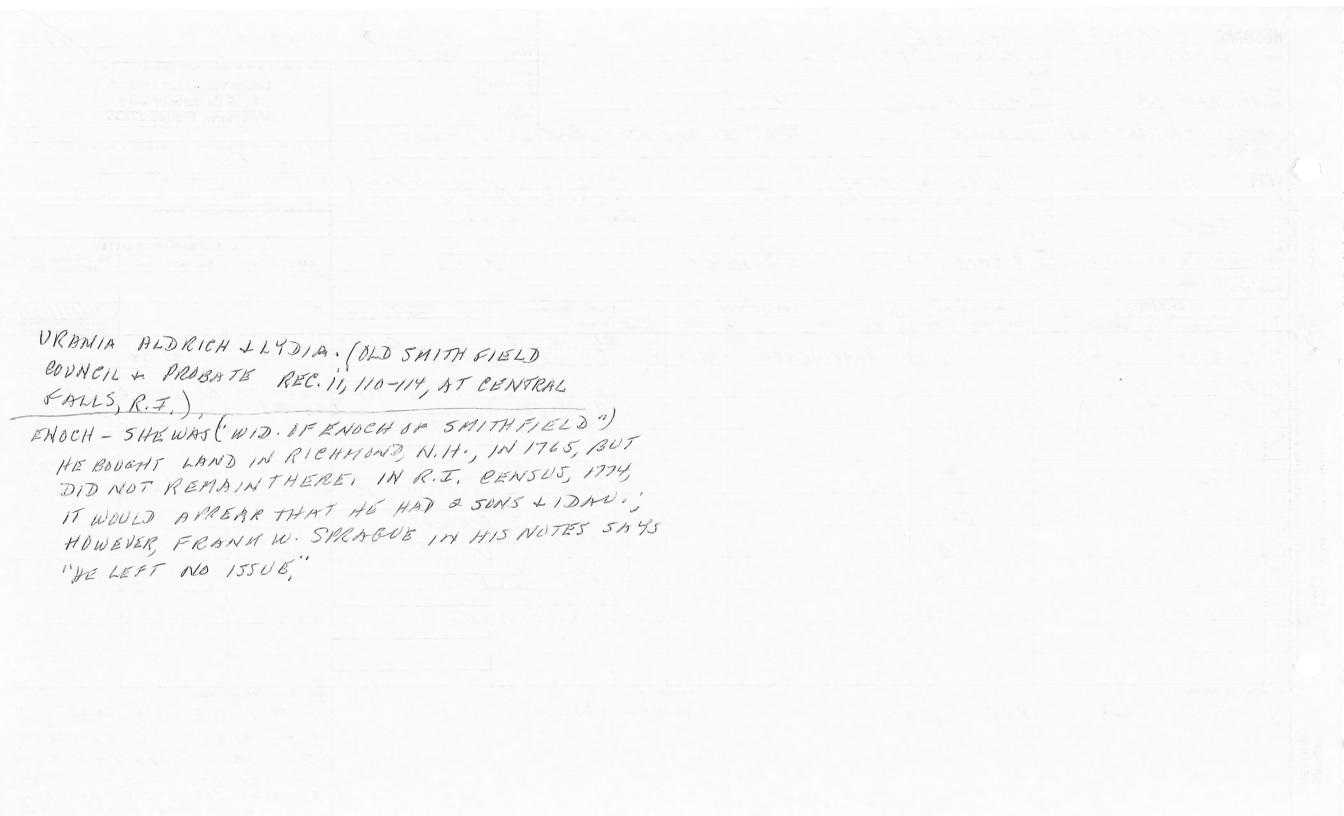 URANIA ALDRICH & LYDIA. (OLD SMITHFIELD
COUNCIL & PROBATE REC. 11, 110-114, AT CENTRAL
FALLS, R.I.).
ENOCH - SHE WAS ("WID. OF ENOCH OF SMITHFIELD")
HE BOUGHT LAND IN RICHMOND, N.H., IN 1765, BUT
DID NOT REMAIN THERE. IN R.I. CENSUS, 1774,
IT WOULD APPEAR THAT HE HAD 2 SONS & 1 DAU.;
HOWEVER, FRANK W. SPRAGUE IN HIS NOTES SAYS
"HE LEFT NO ISSUE."